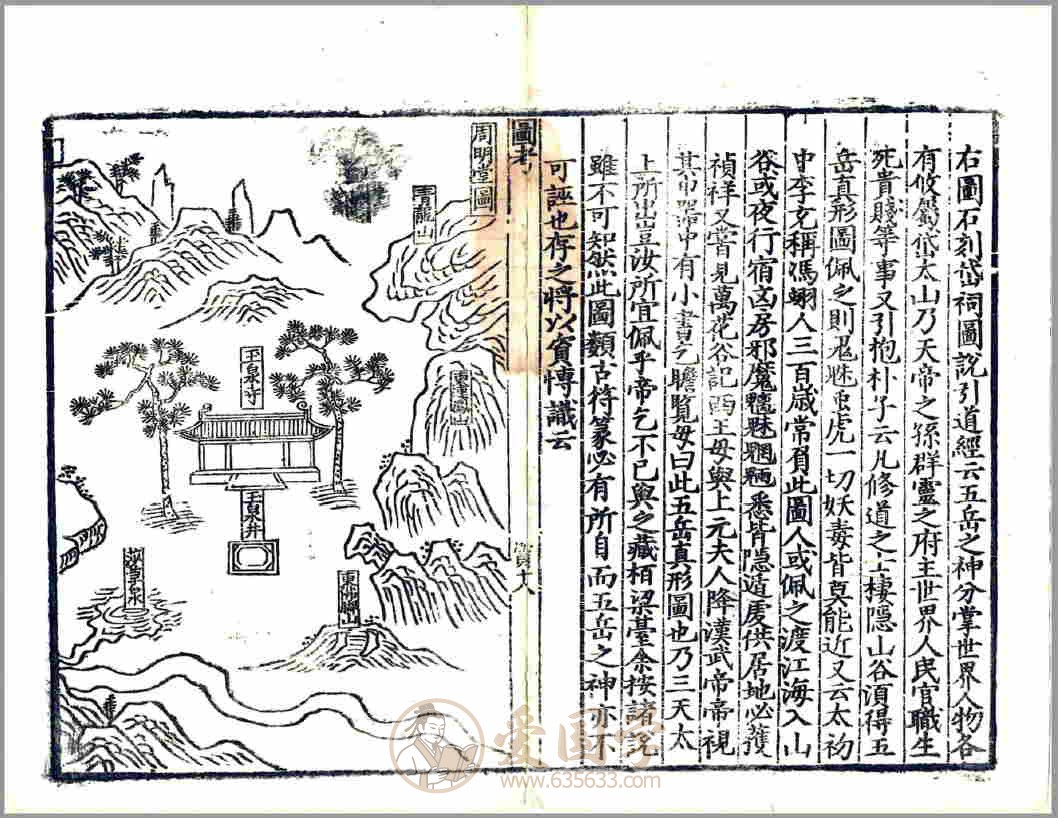 右圖石刻岱祠圖說引道經云五岳之神分掌世界人物各
有攸屬岱太山乃天帝之孫群靈之府主世界人民官職生
死貴賤等事又引抱朴子云凡修道之士棲隱山谷須得五
岳真形圖佩之則鬼魅虫虎一切妖毒皆莫能近又云太初
中李充稱馮翊人三百歲常負此圖人或佩之渡江海入山
谷或夜行宿凶房邪魔魑魅魍魎悉皆隱遁處供居地必獲
禎祥又嘗見萬花谷記西王母與上元夫人降漢武帝帝視
其巾器中有小書乞瞻覽母曰此五岳真形圖也乃三天太
上所出豈汝所宜佩乎帝乞不已與之藏栢梁臺余按諸說
雖不可知然此圖類古符篆必有所自而五岳之神亦不
可誣也存之將以資博識云
圖考
周明堂圖
青龍山
玉泉寺
玉泉井
東佛脚山
爱图学
www.635633.com